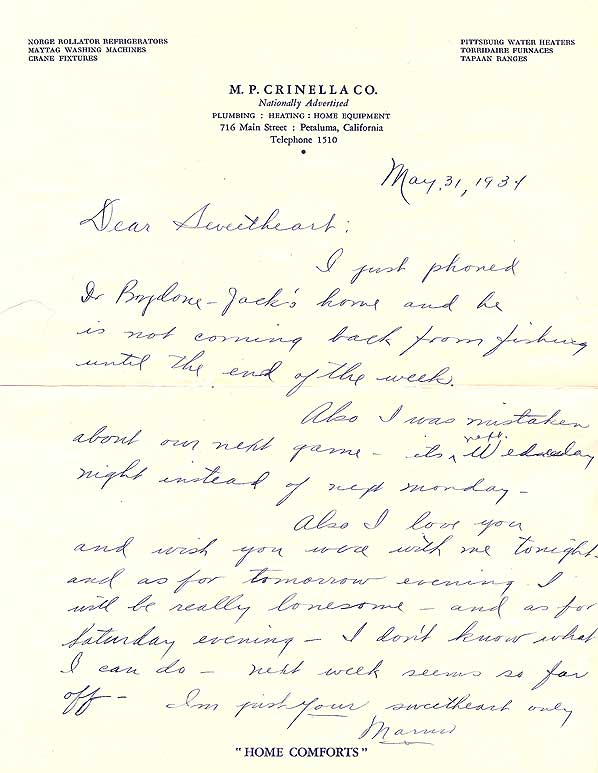 NORGE ROLLATOR REFRIGERATORS
MAYTAG WASHING MACHINES
CRANE FIXTURES
PITTSBURG WATER HEATERS
TORRIDAIRE FURNACES
TAPAAN RANGES
M. P. CRINELLA CO.
Nationally Advertised
PLUMBING : HEATING : HOME EQUIPMENT
716 Main Street : Petaluma, California
Telephone 1510
May, 31, 1934
Dear Sweetheart:
I just phoned
Dr – Jack's home and he
is not coming back from fishing
until the end of the week.
Also I was mistaken
about our next game – its next Wednesday
night instead of next monday –
Also I love you
and wish you were with me tonight –
and as for tomorrow evening I
will be really lonesome – and as for
Saturday evening – I don't know what
I can do – next week seems so far
off – Im just your sweetheart only
"HOME COMFORTS"